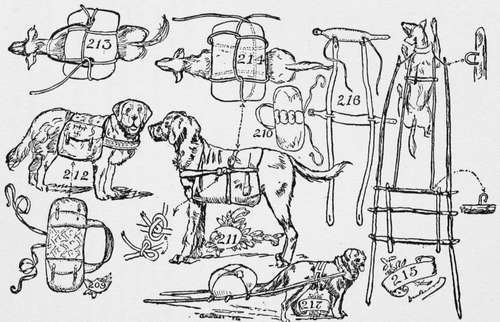 213
214
210
216
212
211
209
215
217